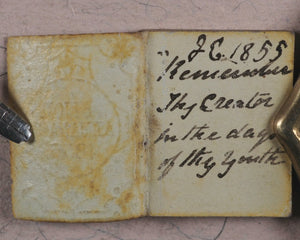 J C. 1855
"Remember
Thy Creator
in the days
of thy Youth